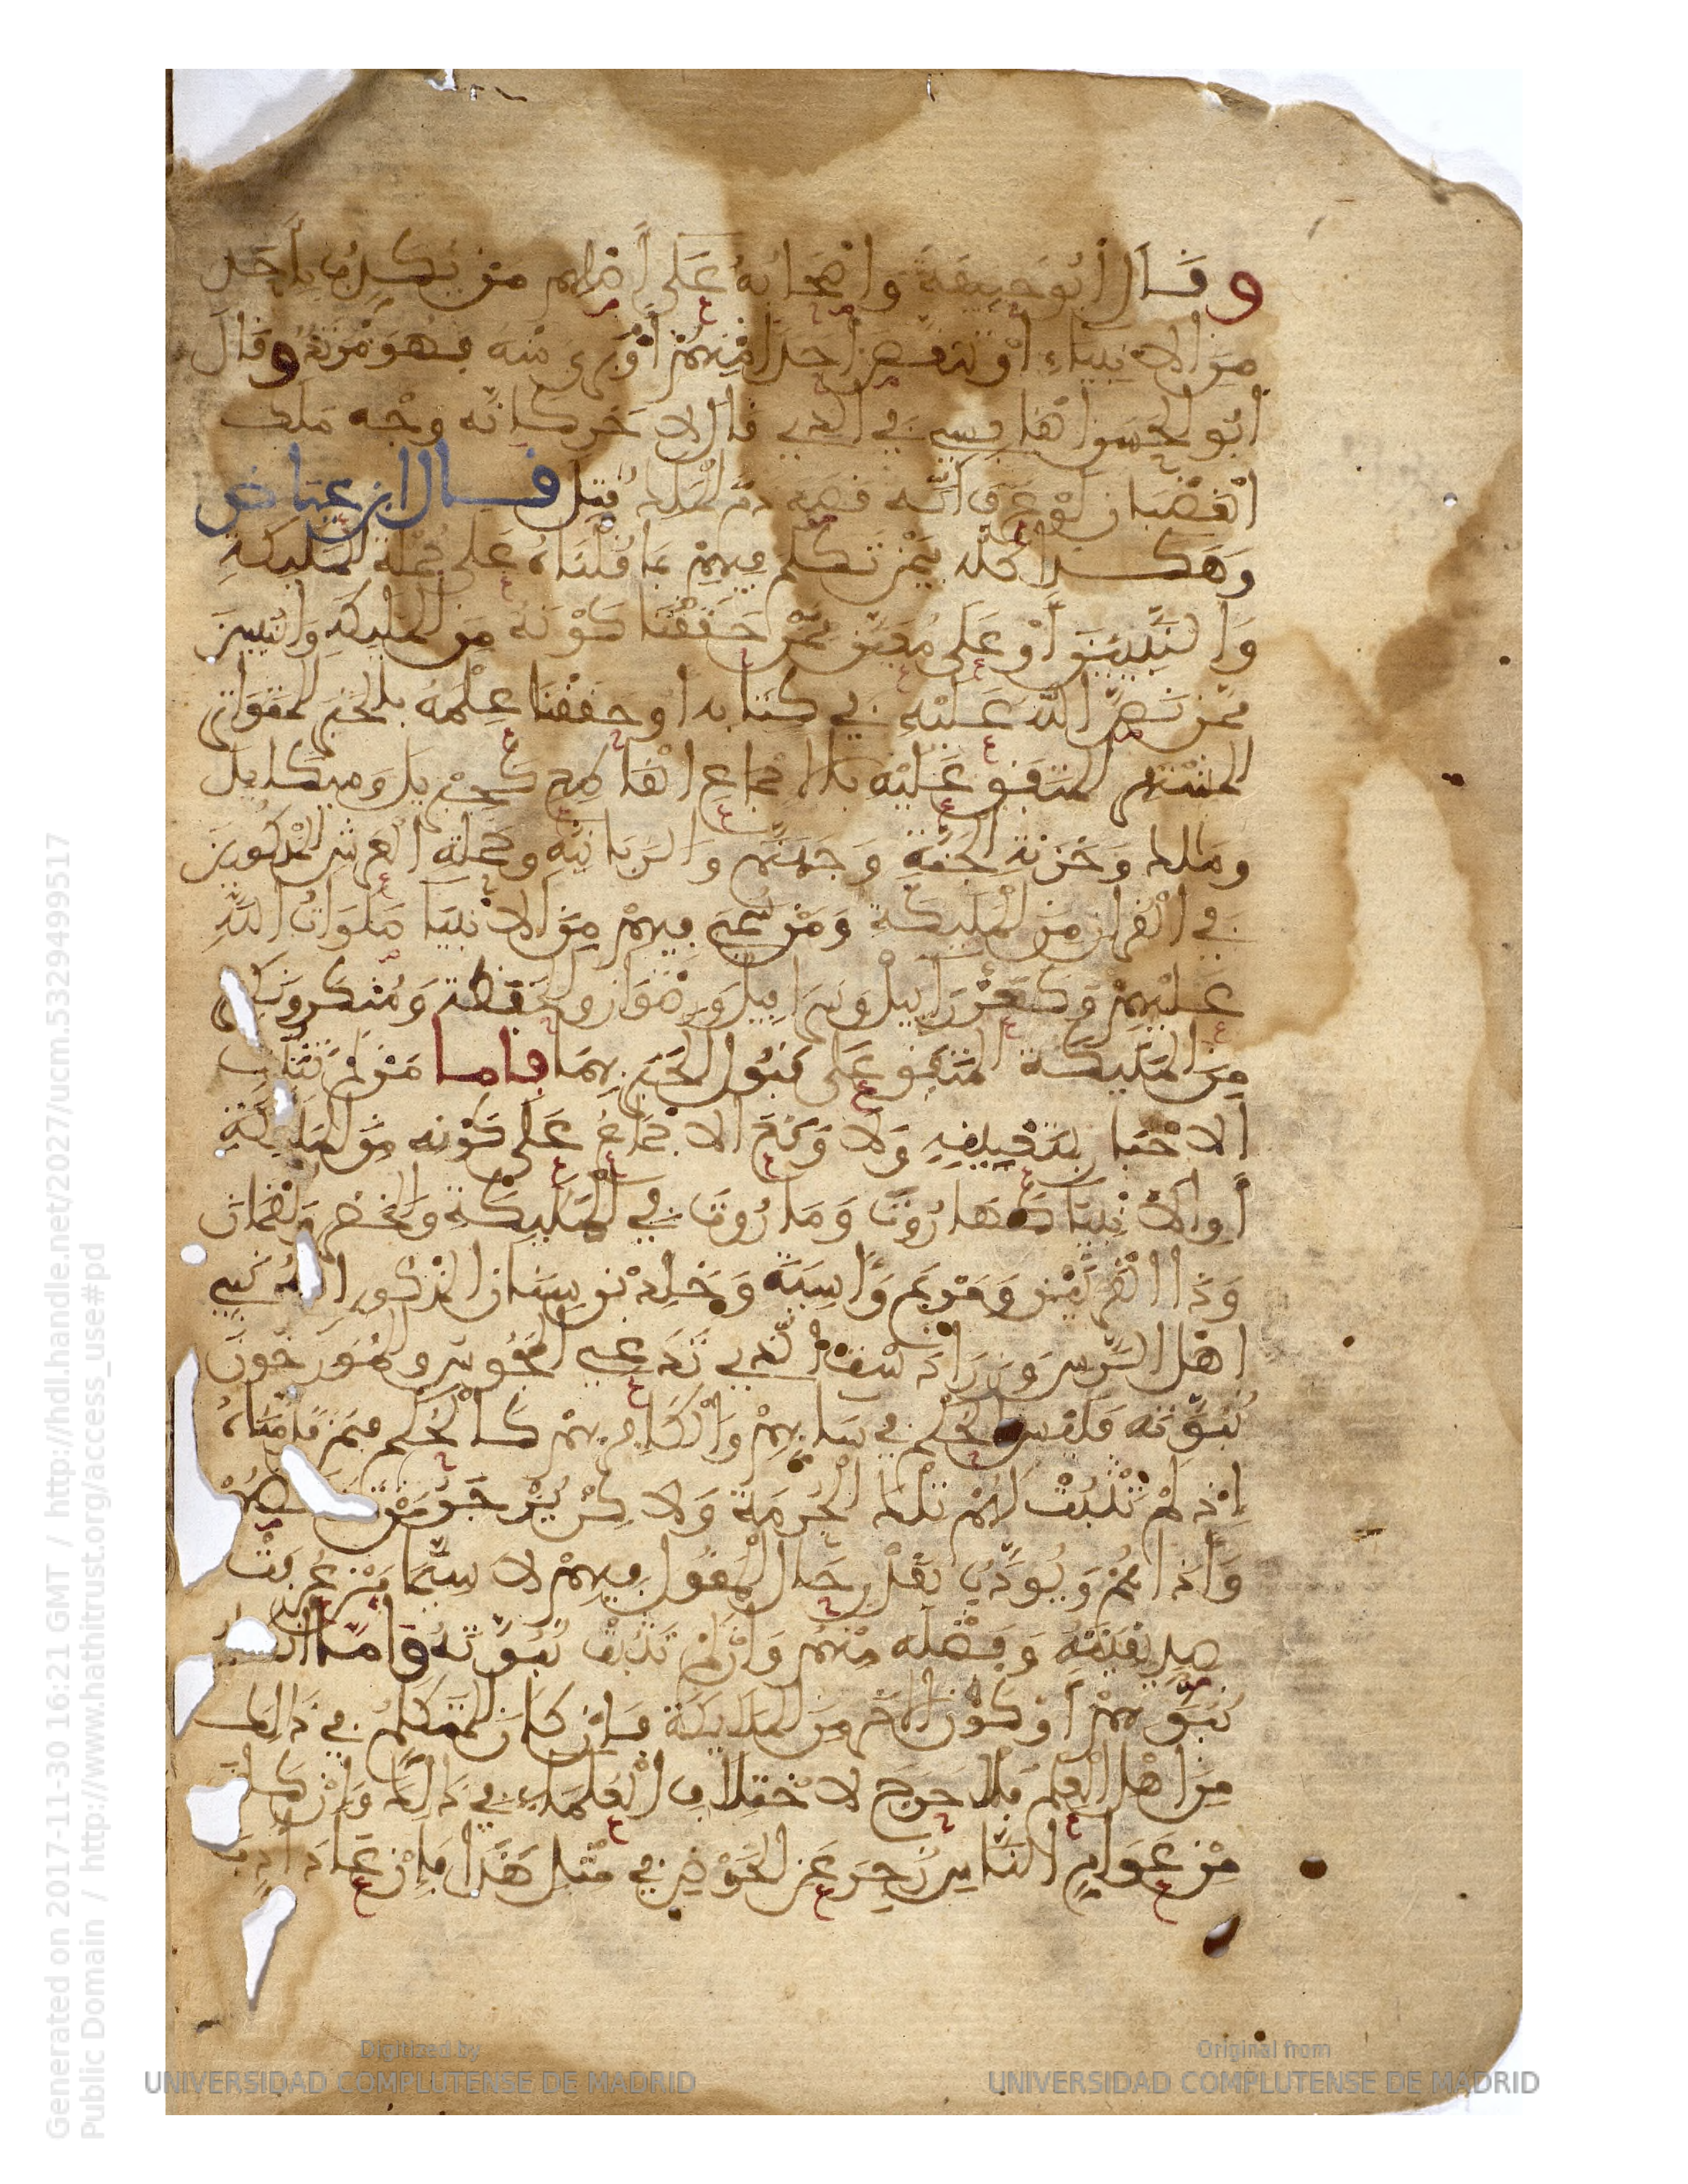 وقال أبو حنيفة وأصحابه على أصلهم من كذب بأحد
من الأنبياء أو تنقص أحدا منهم أو برى منه فهو مرتد وقال
أبو الحسن القابسي في الذي قال لاخر كانه وجه ملك
الغضبان لو عرف أنه قصد ذم الملك قتل قال ابن عياض
وهكذا كله فيمن تكلم فيهم بما قلناه على جملة المليكة
والنبيين أو على معين ممن حققنا كونه من المليكة والنبيين
ممن نص الله عليه في كتابه أو حققنا علمه بالخبر المتواتر
المشتهر المتفق عليه بالاجماع القاطع كجبريل وميكايل
وملك وخزنة الجنة وجهنم والزبانية وحملة العرش المذكورين
في القران من المليكة ومن سمي فيهم من الأنبيا صلوات الله
عليهم وكعزراييل وسرافيل ورضوان والحفظة ومنكر ونكير
من المليكة المتفق على قبول الخبر بهما فاما من لم تثبت
الاخبا بتعيينه ولا وقع الاجماع على كونه من المليكة
أو الأنبيا كهاروت وماروت في المليكة والخضر ولقمان
وذا القرنين ومريم وءاسية وخلد بن سنان المذكور انه نبي
أهل الرس وزرادشت الذي تدعي المجوس والمورخون
نبوته فليس الحكم في سابهم والكافر بهم كالحكم فيمن قدمناه
إذ لم تثبت لهم تلك الحرمة ولكن يزجر من تنقصهم
وأذاهم ويودب بقدر حال المقول فيهم لا سيما من عرفت
صديقيته وفضله منهم وإن لم تثبت نبوته وأما انكار
نبوتهم أو كون الاخر من الملايكة فإن كان المتكلم في ذلك
من أهل العلم فلا حرج لاختلاف العلماء في ذلك وإن كان
من عوام الناس زجر عن الخوض في مثل هذا فإن عاد أدب